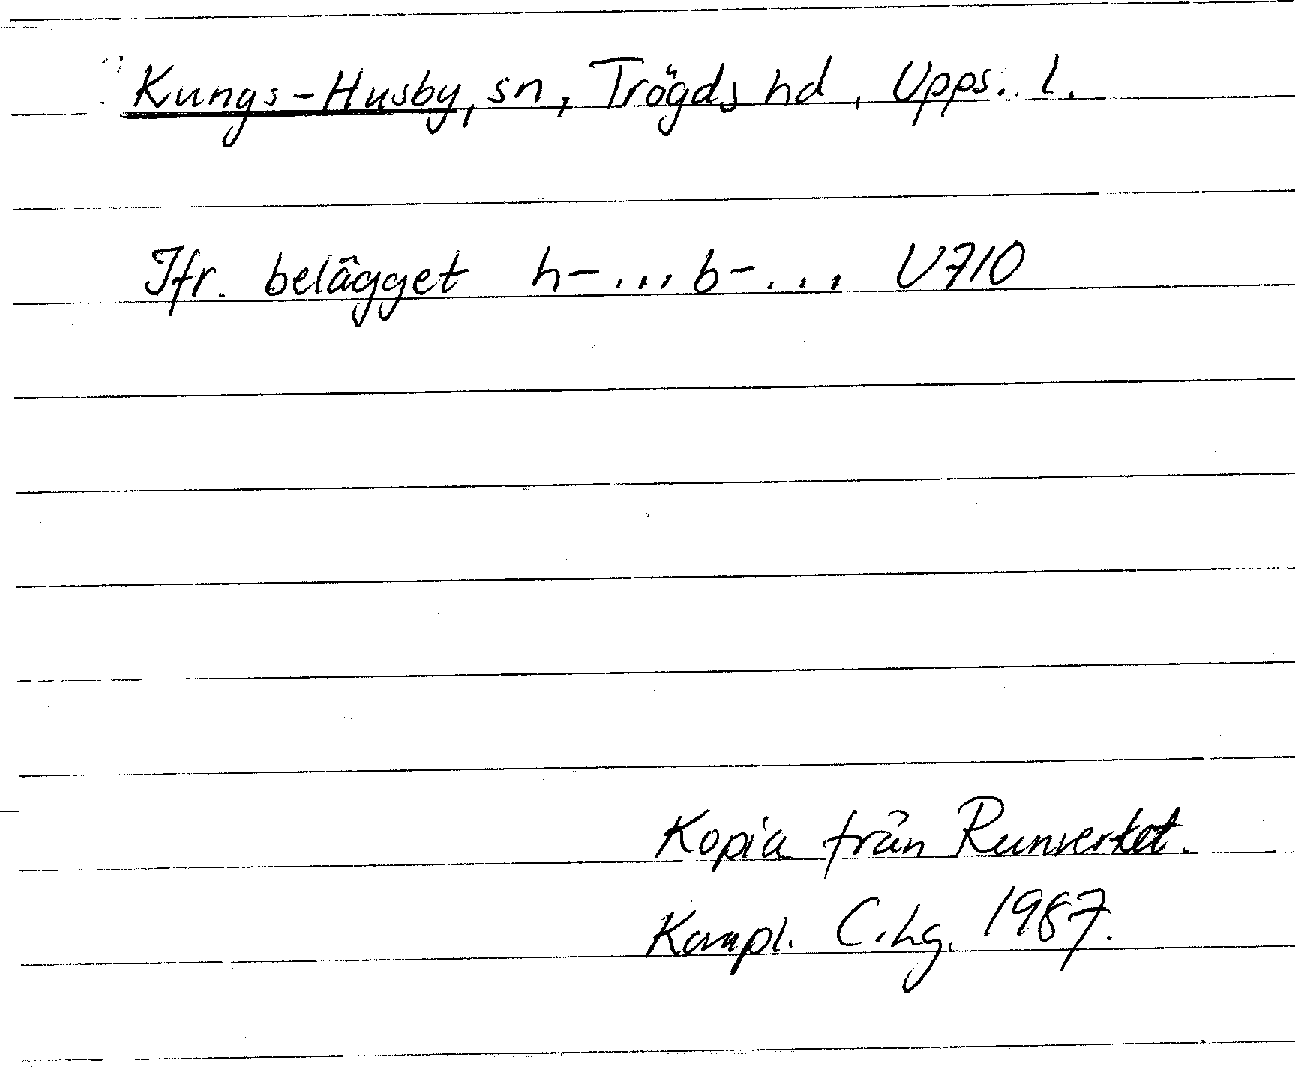 Kungs-Husby, sn, Trögds hd, Upps. l.
Jfr. belägget h-...b-... U710
Kopia från Runverket.
Kompl. C.Lg. 1987.